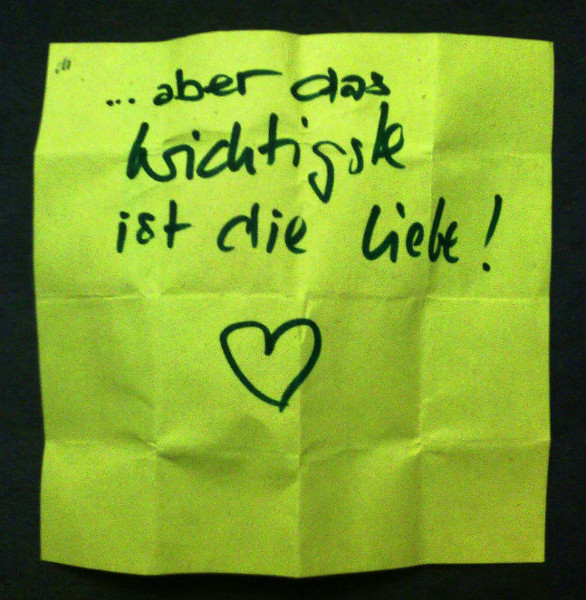 ... aber das
wichtigste
ist die Liebe!